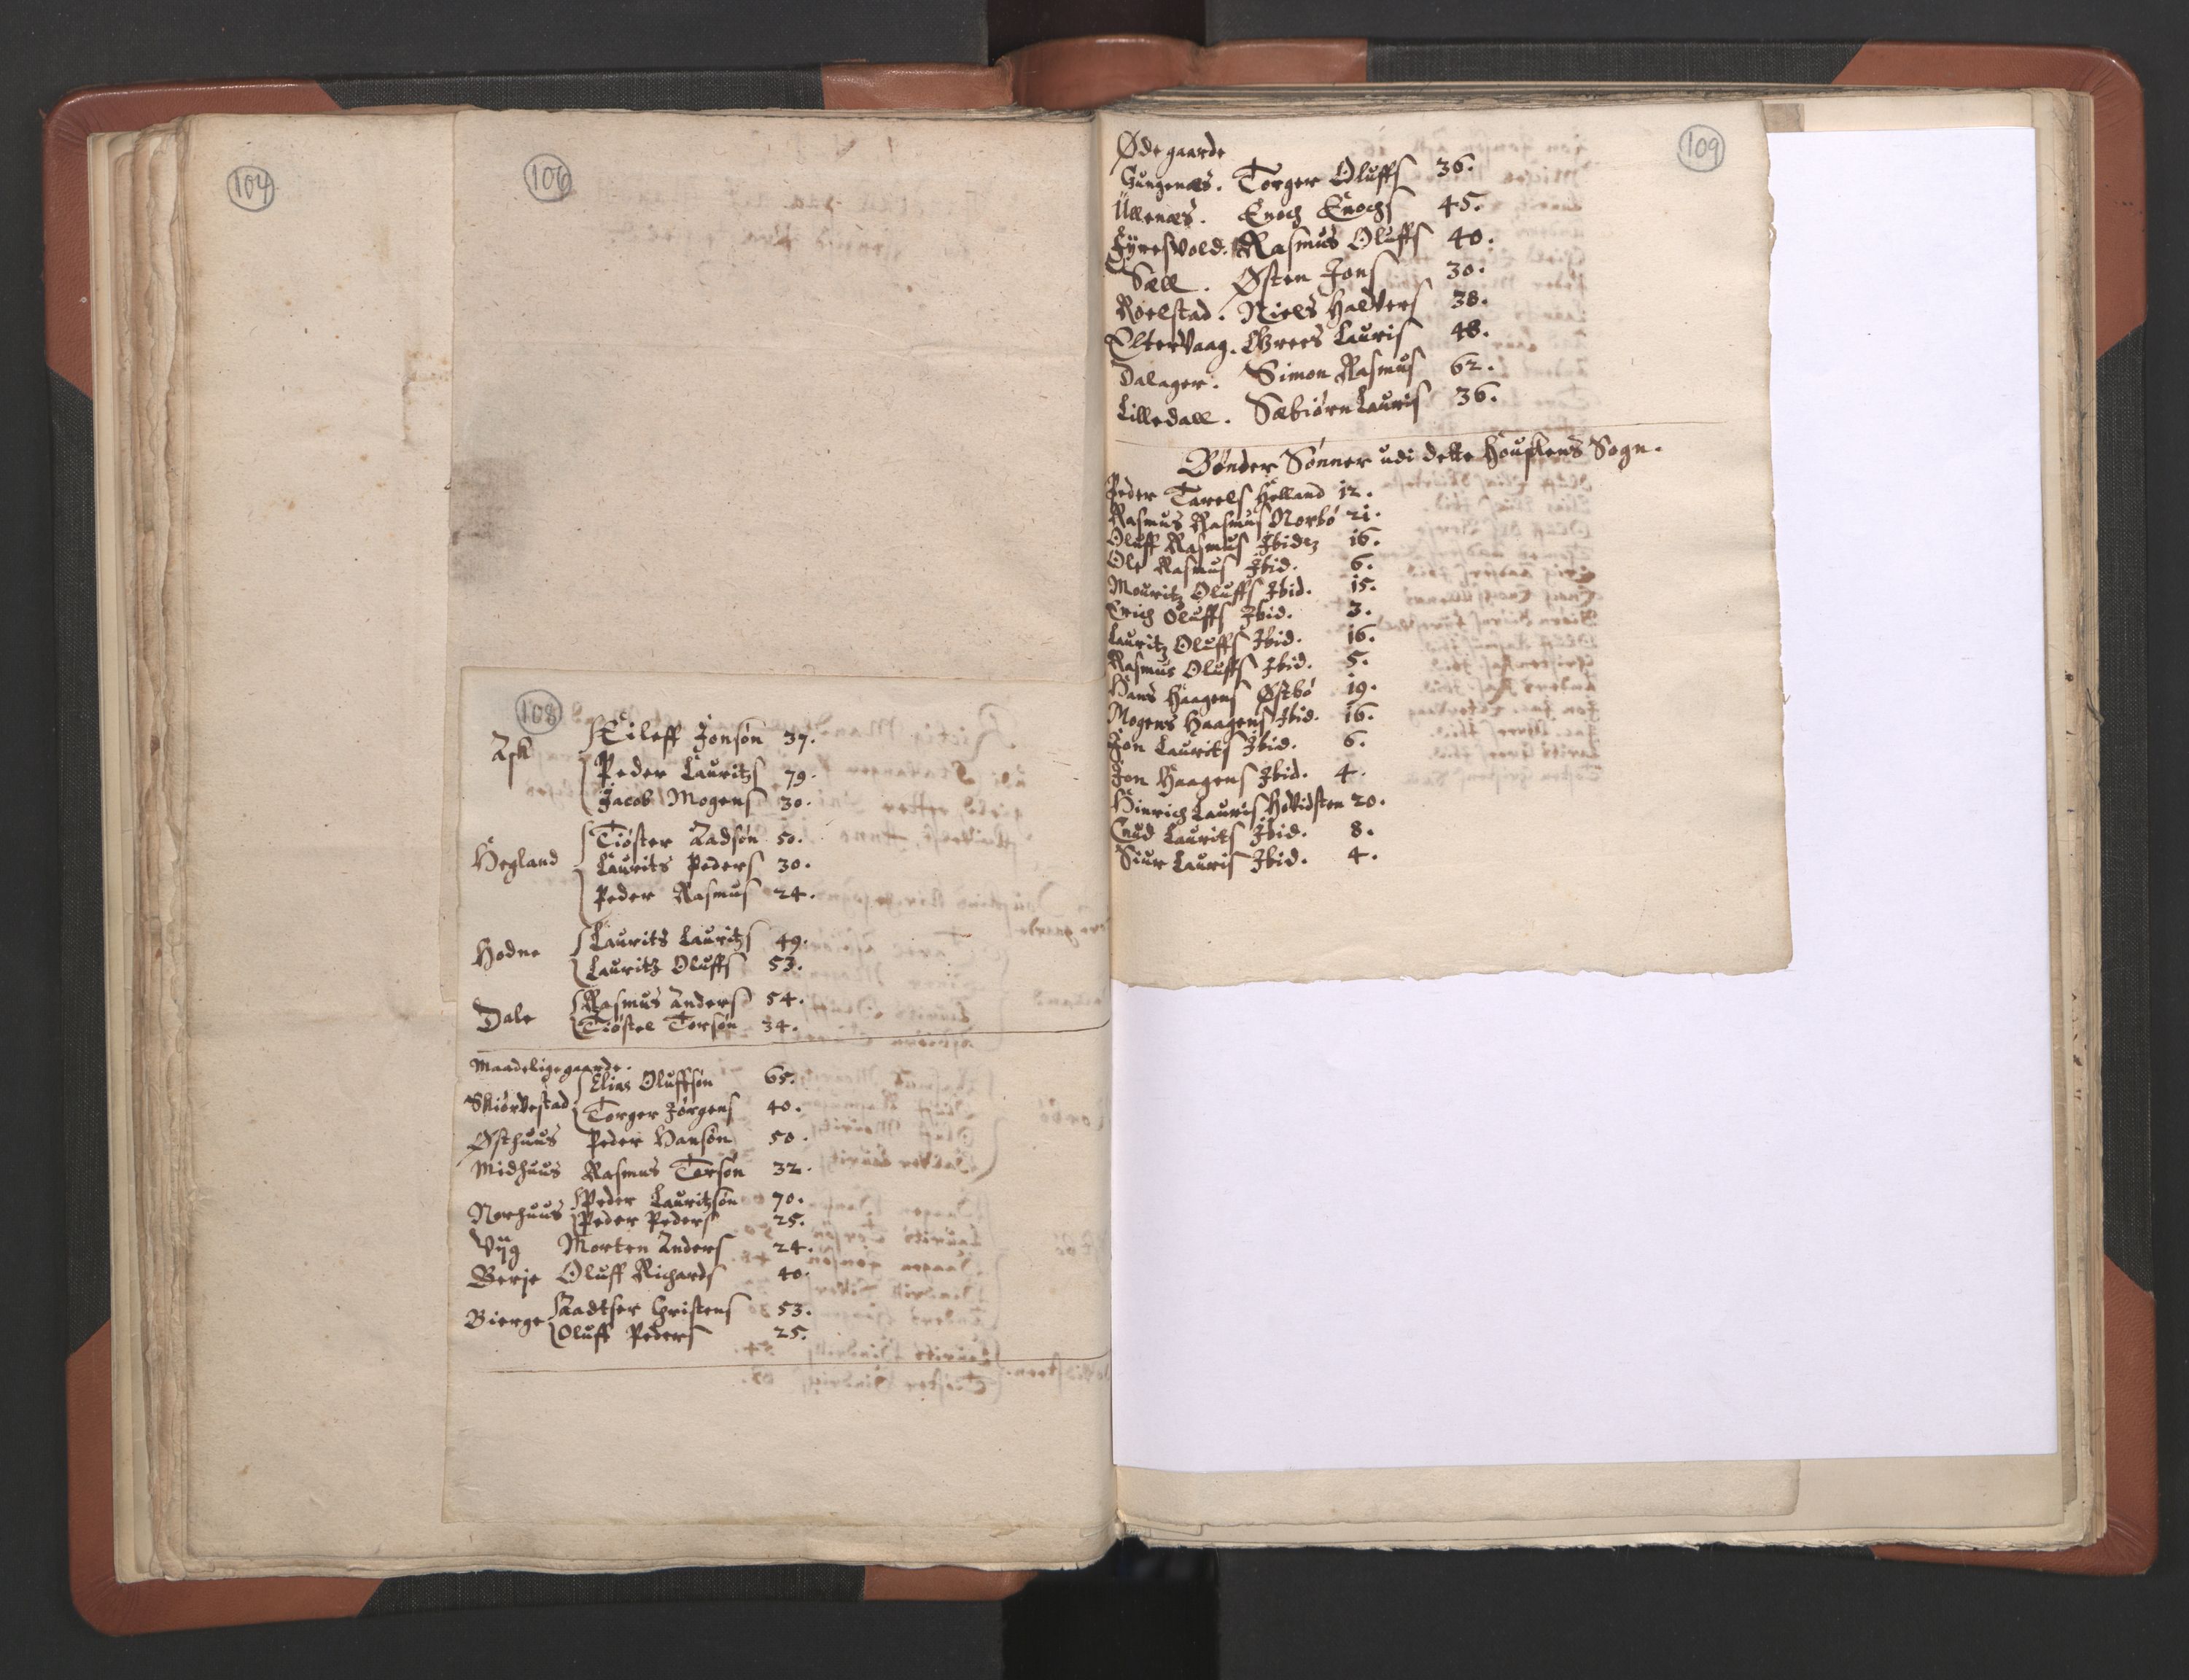 104
106
108
Ask Eileff Jonsøn 37.
Peder Lauritzs 79.
Jacob Mogens 30.
Hegland Tiøster Aadsøn 50.
Laurits Peders 30.
Peder Rasmus 24.
Hodne Laurits Lauritzs 49.
Lauritz Oluffs 53.
Dale Rasmus Anders 54.
Tiøstel Torsøn 34.
Maadelige gaarde.
Skiørvestad Elias Oluffsøn 65.
Torger Jørgens 40.
Østhuus Peder Hansøn 50.
Midhuus Rasmus Torsøn 32.
Norhuus Peder Lauritzsøn 70.
Peder Peders 25.
Viig Morten Anders 24.
Berje Oluff Richards 40.
Bierge Aadtser Christens 53.
Oluff Peders 25.
109
Øde gaarde
Torger Oluffs 36.
Ullenæs. Enoch Enochs 45.
Fyresvold. Rasmus Oluffs 40.
Sæll. Østen Jons 30.
Roelstad. Niels Halvers 38.
Eltervaag. Gvrees Lauris 48.
Dalager. Simon Rasmus 62.
Lilledall. Sæbiørn Lauris 36.
Bønder Sønner udi dette Houskens Sogn.
Peder Tarels Helland 12.
Rasmus Rasmus Norbø 21.
Oluff Rasmus Ibidz 16.
Ole Rasmus Ibid. 6.
Mouritz Oluffs Ibid. 15.
Erich Oluffs Ibid. 3.
Lauritz Oluffs Ibid. 16.
Rasmus Oluffs Ibid. 5.
Hans Haagens Østbø 19.
Mogens Haagens Ibid. 16.
Jon Laurits Ibid. 6.
Jon Haagens Ibid. 4.
Hinrich Lauris Hovidsten 20.
Cnud Laurits Ibid. 8.
Siur Lauris Ibid. 4.